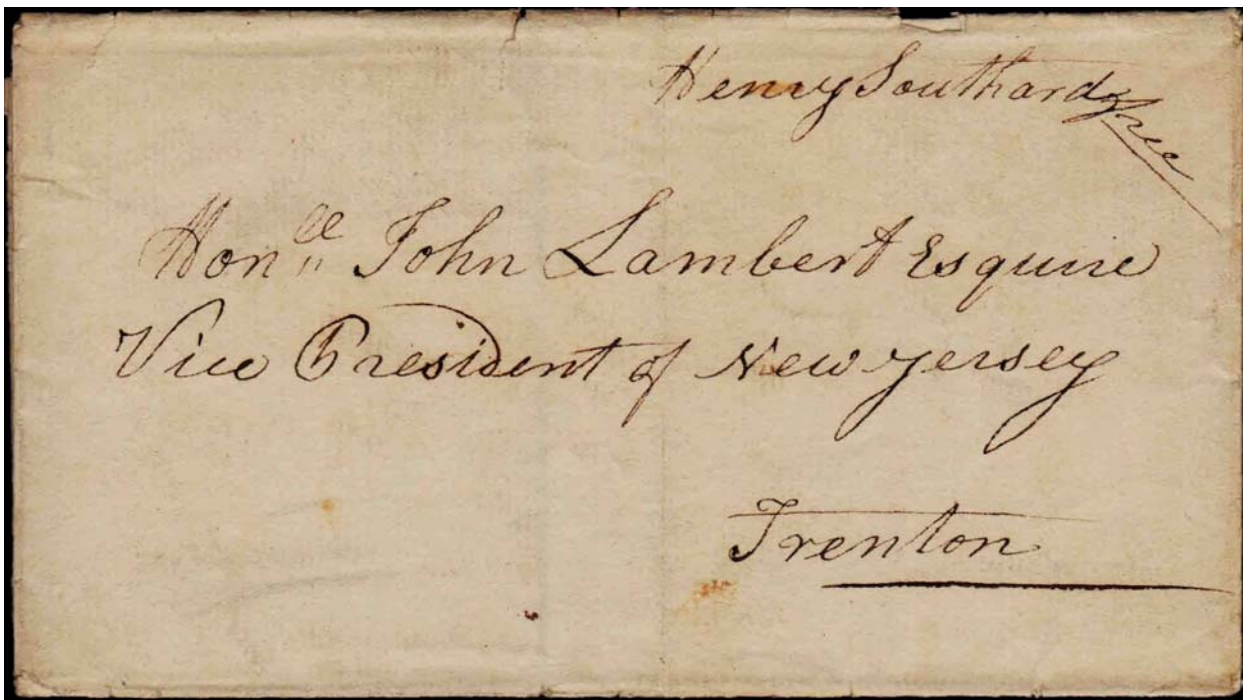 Henry Southard Free
Honˡˡᵉ John Lambert Esquire
Vice President of New Jersey
Trenton